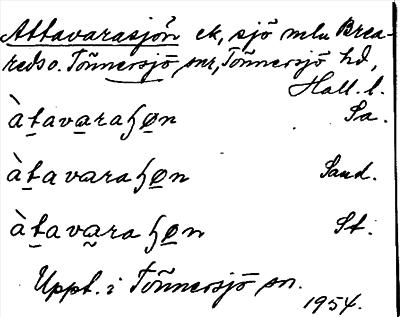 Attavarasjön ek, sjö mln Brea-
reds o. Tönnersjö snr, Tönnersjö hd,
Hall. l.
àtavaraɧøn Sa.
àtavaraɧøn Sand.
àtavaraɧøn St.
Uppt. i Tönnersjö sn.
1954.